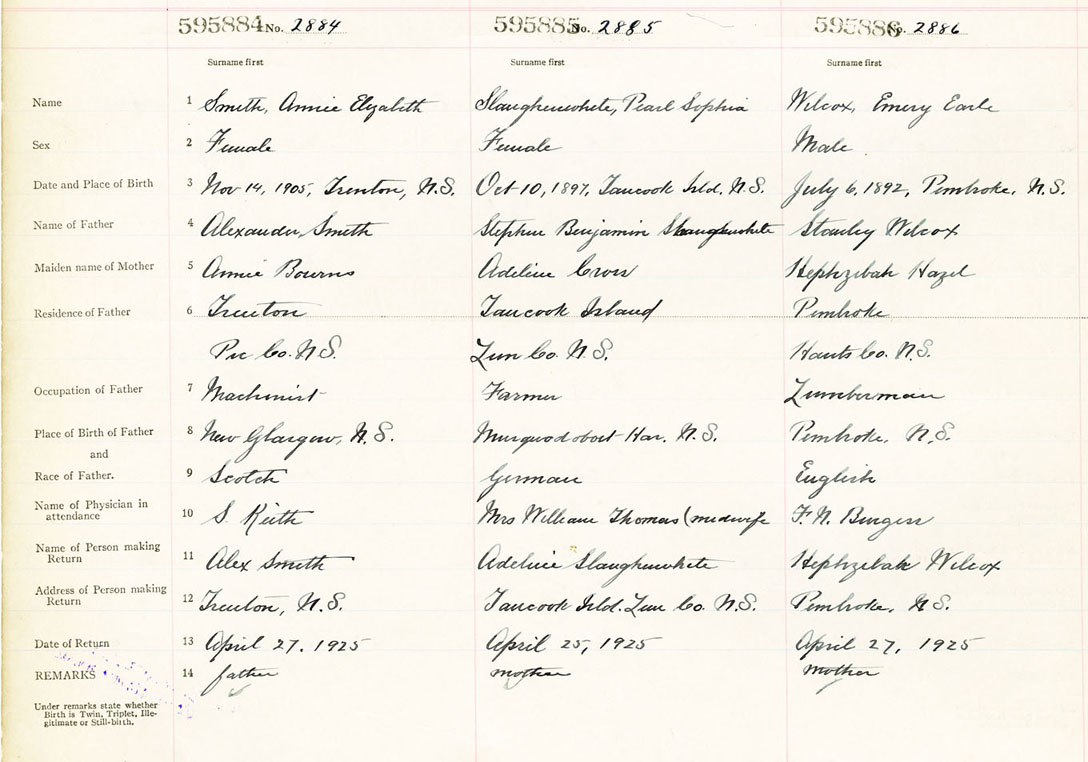 595884 No. 2884 595885 No. 2885 595886 No. 2886
Surname first Surname first Surname first
Name 1 Smith, Annie Elizabeth Slaughenwhite, Pearl Sophia Wilcox, Emery Earle
Sex 2 Female Female Male
Date and Place of Birth 3 Nov 14, 1905, Trenton, N.S. Oct 10, 1897, Tancook Isld. N.S. July 6, 1892, Pembroke, N.S.
Name of Father 4 Alexander Smith Stephen Benjamin Slaughenwhite Stanley Wilcox
Maiden name of Mother 5 Annie Bowrns Adeline Cross Hephzebah Hazel
Residence of Father 6 Trenton Tancook Island Pembroke
Pic Co. N.S. Lun Co. N.S. Hants Co. N.S.
Occupation of Father 7 Machinist Farmer Lumberman
Place of Birth of Father 8 New Glasgow, N.S. Musquodoboit Har. N.S. Pembroke, N.S.
and
Race of Father. 9 Scotch German English
Name of Physician in
attendance 10 S. Keith Mrs William Thomas (midwife F. N. Burgess
Name of Person making
Return 11 Alex Smith Adeline Slaughenwhite Hephzebah Wilcox
Address of Person making
Return 12 Trenton, N.S. Tancook Isld. Lun Co. N.S. Pembroke, N.S.
Date of Return 13 April 27, 1925 April 25, 1925 April 27, 1925
REMARKS 14 father mother mother
Under remarks state whether
Birth is Twin, Triplet, Ille-
gitimate or Still-birth.